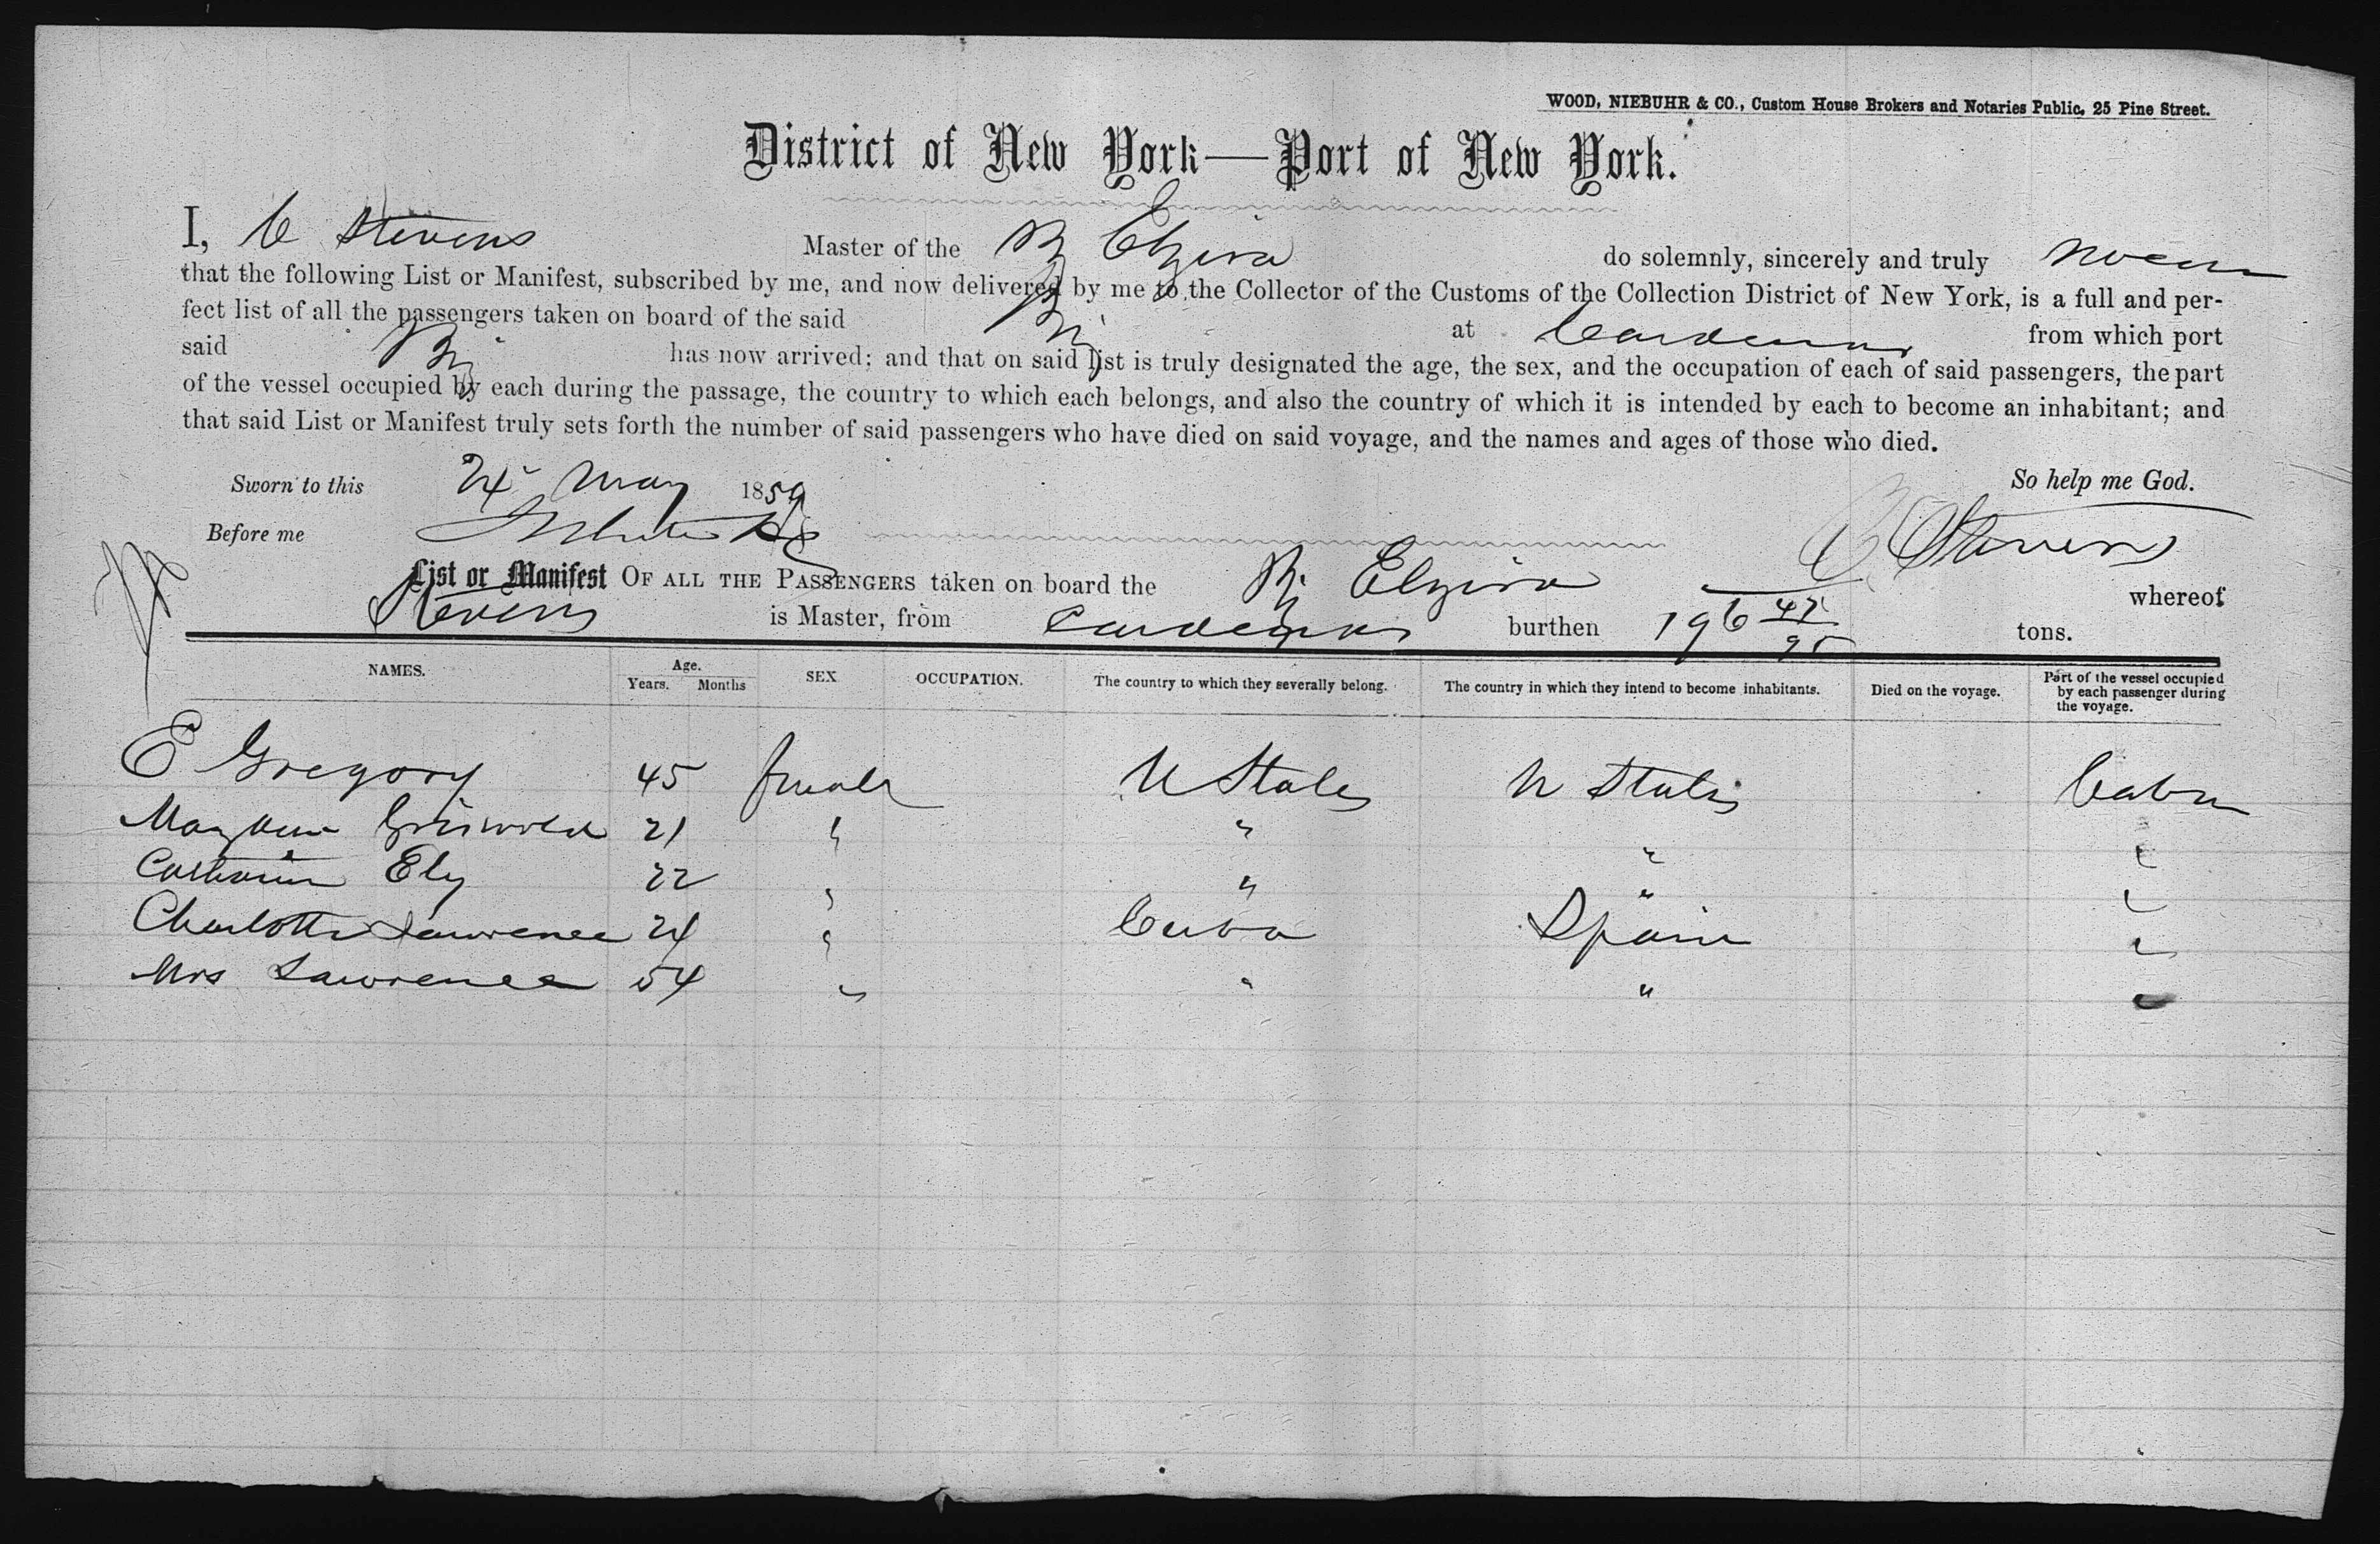 WOOD, NIEBUHR & CO., Custom House Brokers and Notaries Public, 25 Pine Street.
District of New York—Port of New York.
I, C Stevens Master of the Br Elzira do solemnly, sincerely and truly swear
that the following List or Manifest, subscribed by me, and now delivered by me to the Collector of the Customs of the Collection District of New York, is a full and per-
fect list of all the passengers taken on board of the said Brig at Cardenas from which port
said Brig has now arrived; and that on said list is truly designated the age, the sex, and the occupation of each of said passengers, the part
of the vessel occupied by each during the passage, the country to which each belongs, and also the country of which it is intended by each to become an inhabitant; and
that said List or Manifest truly sets forth the number of said passengers who have died on said voyage, and the names and ages of those who died.
Sworn to this 24 May 1859 So help me God.
Before me C Stevens
List or Manifest OF ALL THE PASSENGERS taken on board the Br Elzira whereof
Stevens is Master, from Cardenas burthen 196 47/95 tons.
NAMES. Age. Years. Months SEX OCCUPATION. The country to which they severally belong. The country in which they intend to become inhabitants. Died on the voyage. Part of the vessel occupied by each passenger during the voyage.
E Gregory 45 female U States U States Cabin
Mary Ann Griswold 21 " " " "
Catharine Ely 22 " " " "
Charlotte Lawrence 24 " Cuba Spain "
Mrs Lawrence 54 " " " "